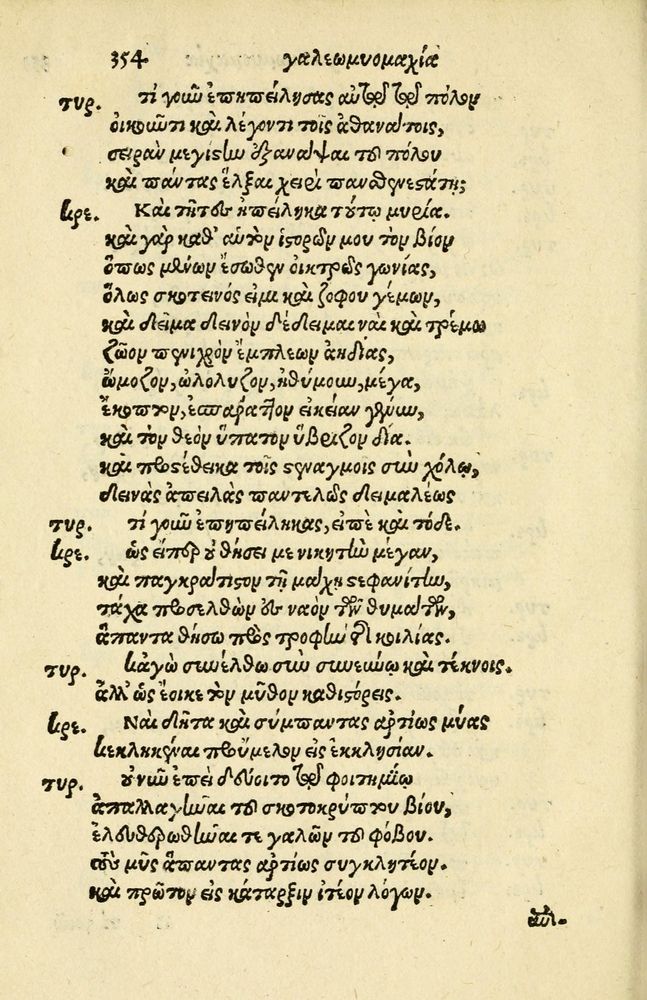 354 γαλεωμυομαχία
τυρ. τί γοῦν ἐπηπείλησας αὐτῷ τῷ πόλον
οἰκοῦντι καὶ λέγοντι τοῖς ἀθανάτοις,
σειρὰν μεγίστην ἐξανάψαι τοῦ πόλου
καὶ πάντας ἕλξαι χειρὶ πανσθενεστάτῃ;
κρε. Καὶ τῆτον ἠπείληκα τούτῳ μυρία.
καὶ γὰρ καθ' αὑτὸν ἱστορῶν μου τὸν βίον
ὅπως μένων ἔσωθεν οἰκτρῶς γωνίας,
ὅλως σκοτεινός εἰμι καὶ ζόφου γέμων,
καὶ δεῖμα δεινὸν δέδειμαι ναὶ καὶ τρέμω
ζῶον πενιχρὸν ἔμπλεων ἀηδίας,
ᾤμοζον, ὠλόλυζον, ἠθύμουν, μέγα,
ἔκοπτον, ἐσπάραττον εἰκείαν γένυν,
καὶ τὸν θεὸν ὕπατον ὕβριζον δία.
καὶ προστέθεικα τοῖς στεναγμοῖς σὺν χόλῳ,
δεινὰς ἀπειλὰς παντελῶς δειμαλέως
τυρ. τί γοῦν ἐπηπείληκας, εἰπὲ καὶ τόδε.
κρε. ὡς εἴπερ οὐ θήσει με νικητὴν μέγαν,
καὶ παγκράτιστον τῇ μάχῃ στεφανίτην,
τάχα προσελθὼν ἐν ναὸν τῶν θυμάτων,
ἅπαντα θήσω πρὸς τροφὴν τῆς κοιλίας.
τυρ. κἀγὼ συνέλθω σὺν συνεύνῳ καὶ τέκνοις.
ἀλλ' ὡς ἔοικε τὸν μῦθον καθιστόρεις.
κρε. Ναὶ δῆτα καὶ σύμπαντας ἀρτίως μύας
κεκληκέναι προὔμελον εἰς ἐκκλησίαν.
τυρ. οὐκοῦν ἐπεὶ δεύοιτο τῷ φοιτημίῳ
ἀπαλλαγῆναι τοῦ σκοτοκρύπτου βίου,
ἐλευθερωθῆναί τε γαλῶν τοῦ φόβου.
τοὺς μῦς ἅπαντας ἀρτίως συγκλητέον.
καὶ πρῶτον εἰς κάταρξιν ἰτέον λόγων.